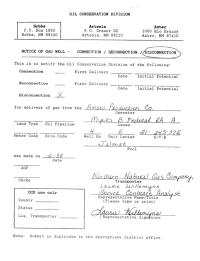 OIL CONSERVATION DIVISION
Hobbs
P.O. Box 1980
Hobbs, NM 88240
Artesia
P.O. Drawer DD
Artesia, NM 88210
Aztec
1000 Rio Brazos
Aztec, NM 87410
NOTICE OF GAS WELL - CONNECTION / RECONNECTION / DISCONNECTION
This is to notify the Oil Conservation Division of the following:
Connection First Delivery
Date Initial Potential
Reconnection First Delivery
Date Initial Potential
Disconnection X
for delivery of gas from the Amoco Production Co.
Operator
Myers B Federal RA A
Lease
Land Type Oil Pipeline
Meter Code Site Code Well No. Unit Letter S-T-R
Jalmat
Pool
was made on
date
AOF
Choke
Northern Natural Gas Company
Transporter
OCD use only
County
Status
Liq. Transporter
Representative Name/Title
(Please type or print)
Representative Signature
Note: Submit in duplicate to the appropriate district office.